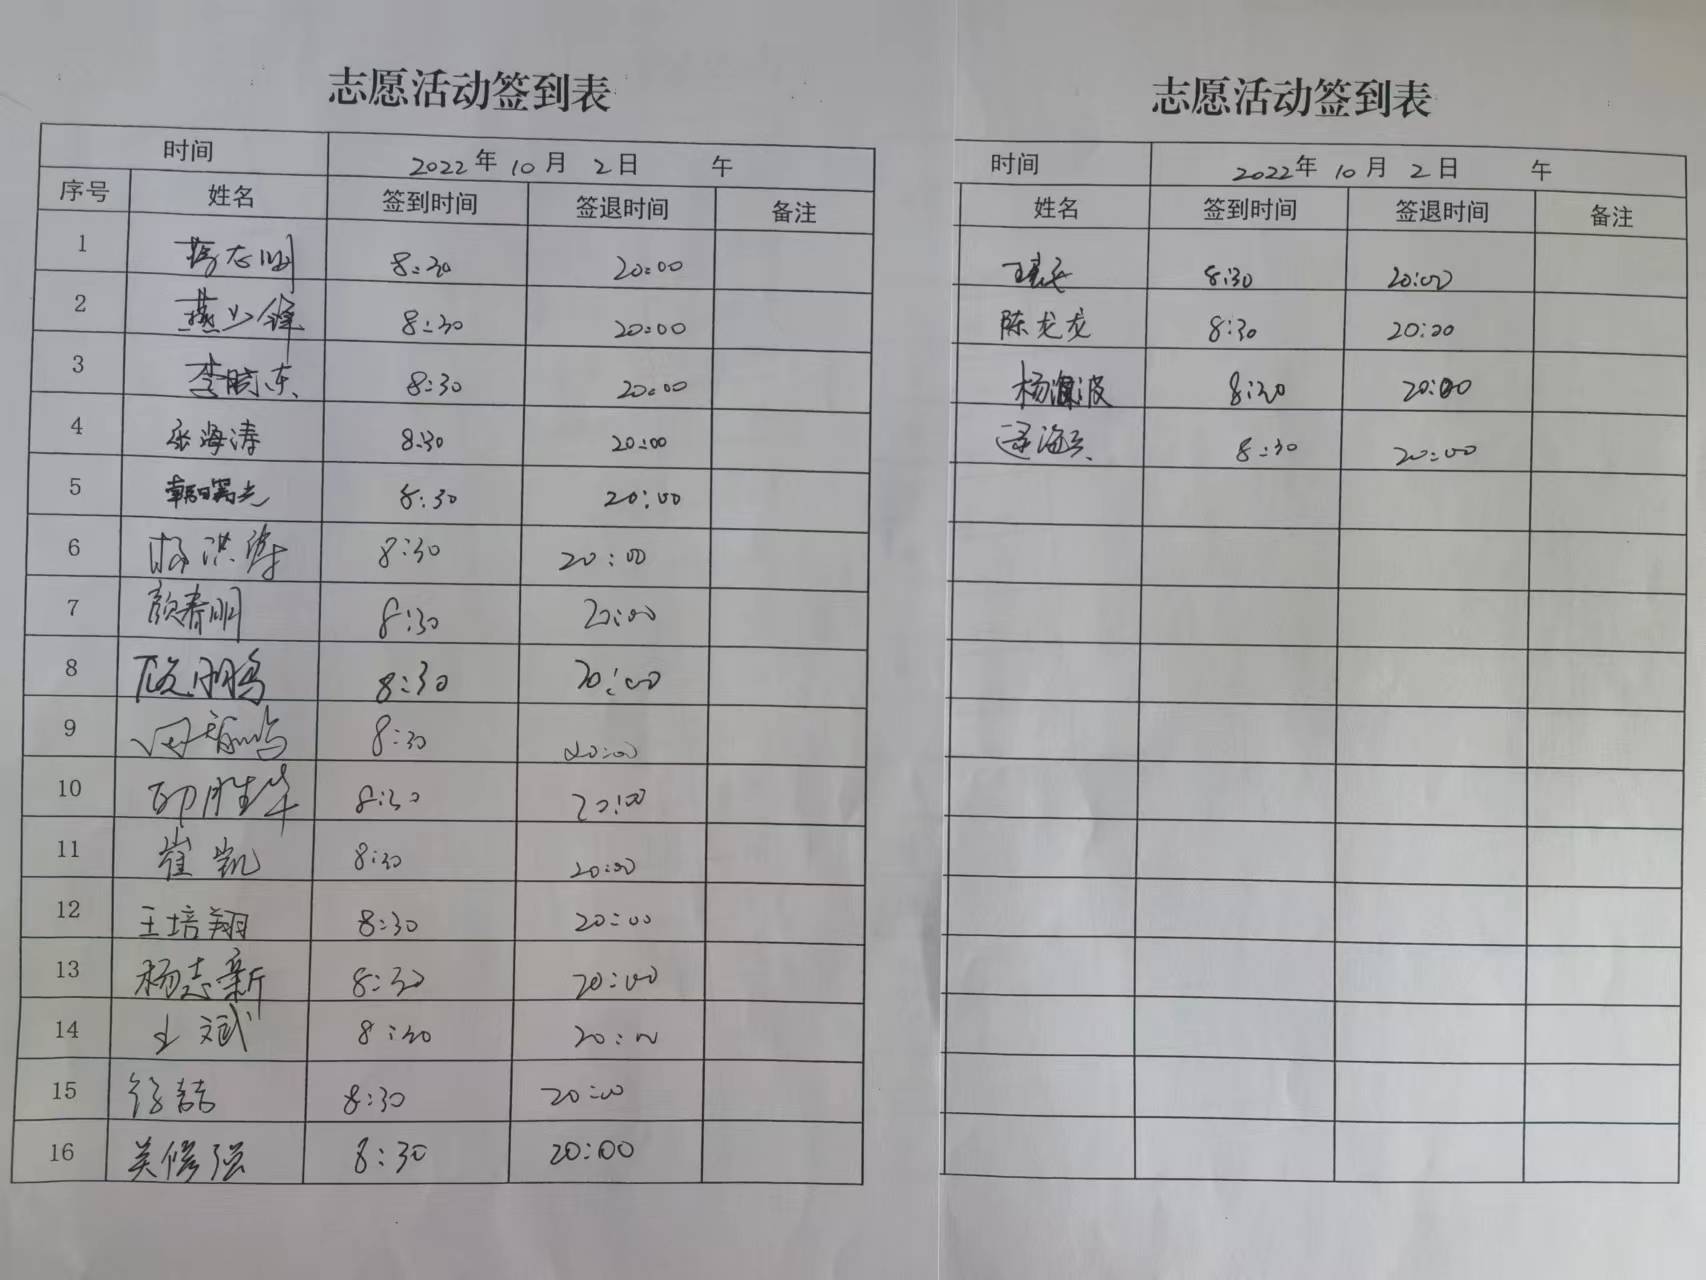 志愿活动签到表
时间 2022年 10月 2日 午
序号 姓名 签到时间 签退时间 备注
1 蒋志明 8:30 20:00
2 燕少锋 8:30 20:00
3 李晓东 8:30 20:00
4 张海涛 8:30 20:00
5 韩曙光 8:30 20:00
6 杨洪涛 8:30 20:00
7 颜春明 8:30 20:00
8 8:30 20:00
9 8:30 20:00
10 胜华 8:30 20:00
11 崔凯 8:30 20:00
12 王培翔 8:30 20:00
13 杨志新 8:30 20:00
14 王斌 8:30 20:00
15 徐喆 8:30 20:00
16 吴修强 8:30 20:00
志愿活动签到表
时间 2022年 10月 2日 午
姓名 签到时间 签退时间 备注
8:30 20:00
陈龙龙 8:30 20:00
杨 波 8:30 20:00
8:30 20:00